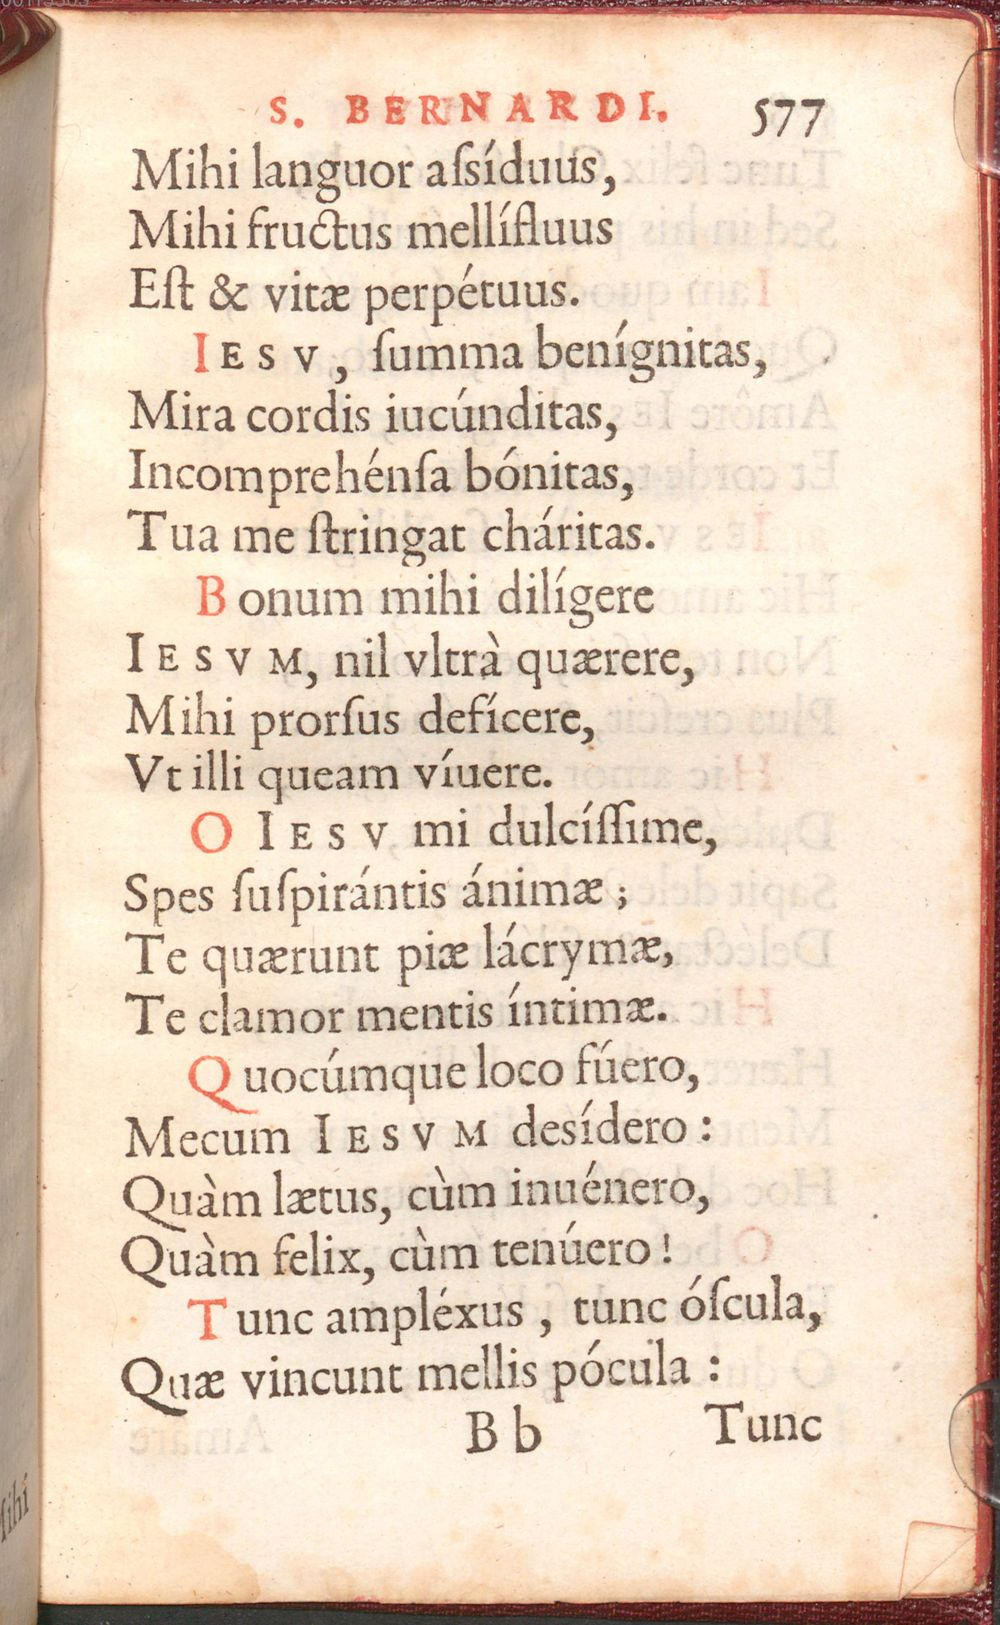 S. BERNARDI. 577
Mihi languor aſsíduus,
Mihi fructus mellífluus
Eſt & vitæ perpétuus.
IESV, ſumma benígnitas,
Mira cordis iucúnditas,
Incomprehénſa bónitas,
Tua me ſtringat cháritas.
Bonum mihi dilígere
IESVM, nil vltrà quærere,
Mihi prorſus defícere,
Vt illi queam víuere.
O IESV mi dulcíſſime,
Spes ſuſpirántis ánimæ ;
Te quærunt piæ lácrymæ,
Te clamor mentis íntimæ.
Quocúmque loco fúero,
Mecum IESVM desídero :
Quàm lætus, cùm inuénero,
Quàm felix, cùm tenúero !
Tunc ampléxus , tunc óſcula,
Quæ vincunt mellis pócula :
Bb Tunc